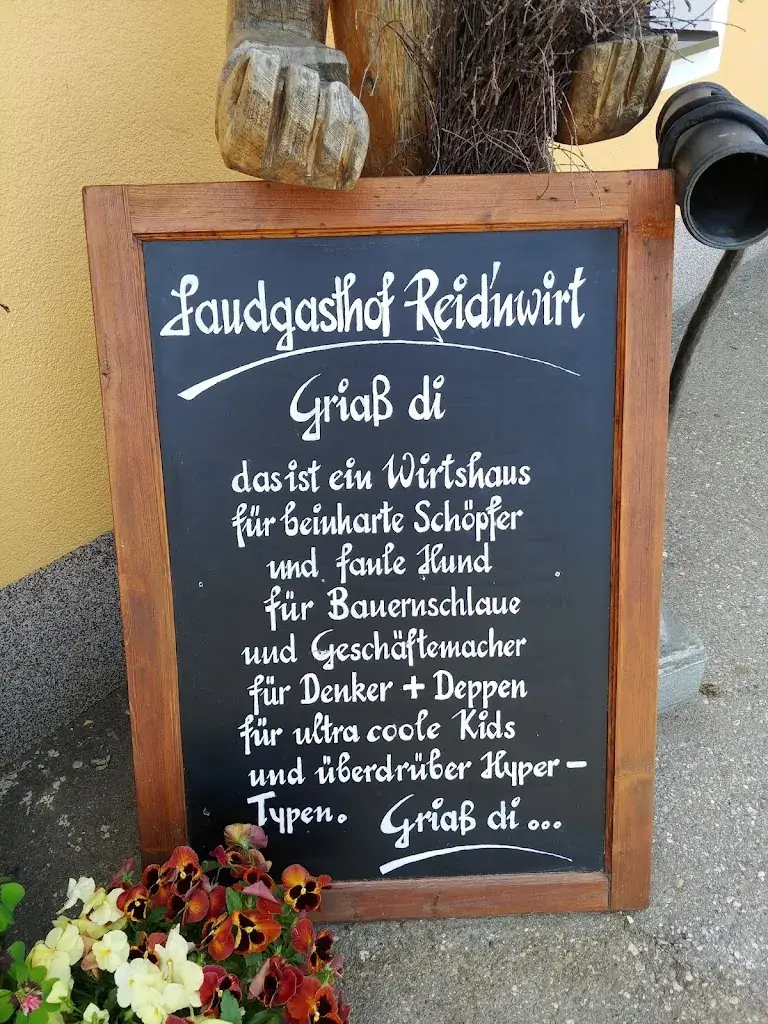 Landgasthof Reid'nwirt
Griaß di
das ist ein Wirtshaus
für beinharte Schöpfer
und faule Hund
für Bauernschlaue
und Geschäftemacher
für Denker + Deppen
für ultra coole Kids
und überdrüber Hyper-
Typen. Griaß di...